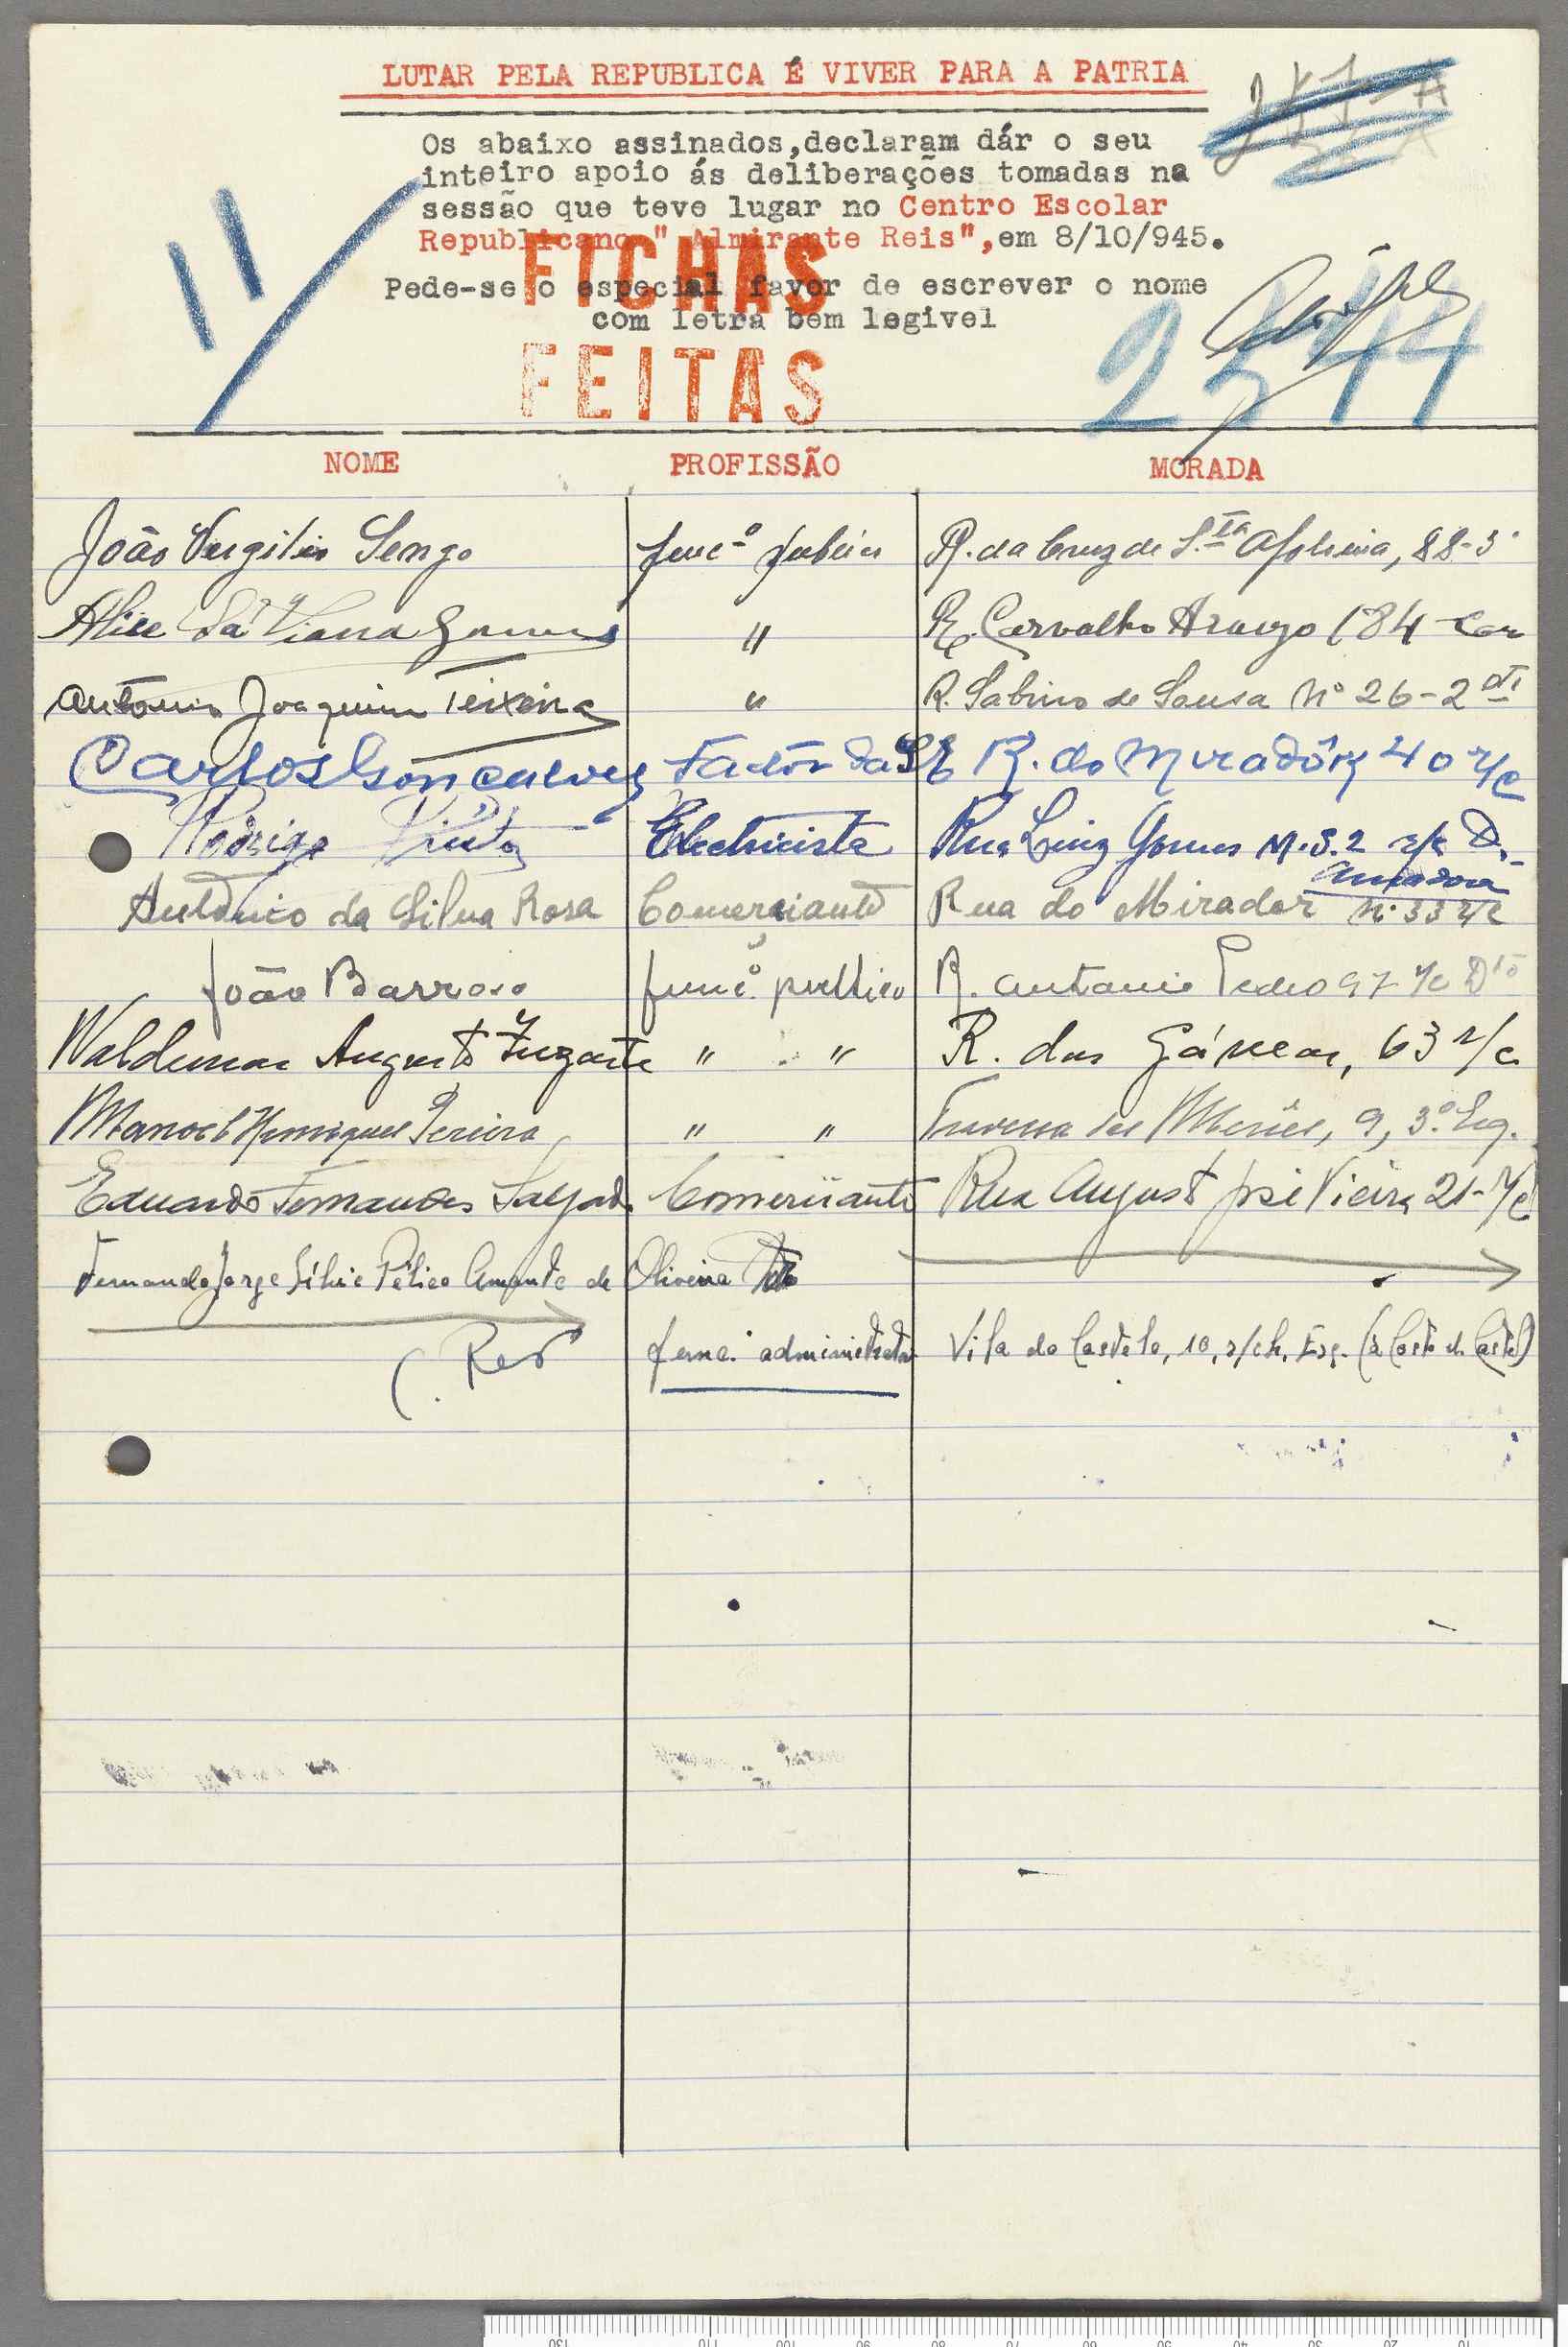 LUTAR PELA REPUBLICA É VIVER PARA A PATRIA
Os abaixo assinados,declaram dár o seu
inteiro apoio ás deliberações tomadas na
sessão que teve lugar no Centro Escolar
Republicano " Almirante Reis",em 8/10/945.
Pede-se o especial favor de escrever o nome
com letra bem legivel
FICHAS
FEITAS
2544
NOME PROFISSÃO MORADA
João Vergilio Sengo func.º publico R. da Cruz de S.ta Apolonia, 88-3º
Alice Sá Viana Gomes " R. Carvalho Araujo 184
Antonio Joaquim Teixeira " R. Sabino de Sousa Nº 26-2º
Carlos Gonçalves Factôr da R. do Miradôr 40 r/c
Rodrigo Electricista Rua Luiz Gomes r/c D.
Amadora
António da Silva Rosa Comerciante Rua do Mirador nº 33 r/c
João Barroso func.º publico R. Antonio Pedro 97 r/c Dto
Waldemar Augusto Zuzarte " " R. das Gáveas, 63 r/c
Manoel Henriques Pereira " " Travessa das Mercês, 9, 3.º Esq.
Eduardo Fernandes Salgado Comerciante Rua Augusto José Vieira 21-r/c
Fernando Jorge Silvio Pelico Amante de Oliveira
func. administrativo Vila do Castelo, 10, r/ch. Esq. (à Costa do Castelo)